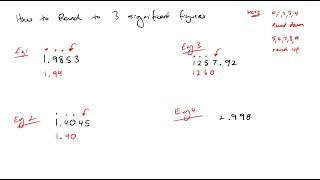 How to Round to 3 significant figures
Note: 0,1,2,3,4
round down
5,6,7,8,9
round up
Eg 1
1.9853
1.99
Eg 3
1257.92
1260
Eg 2
1.4045
1.40
Eg 4
2.998